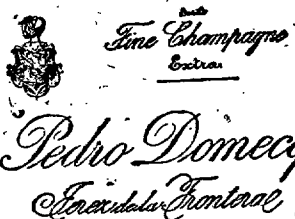 Fine Champagne
Extra
Pedro Domecq
Jerez de la Frontera